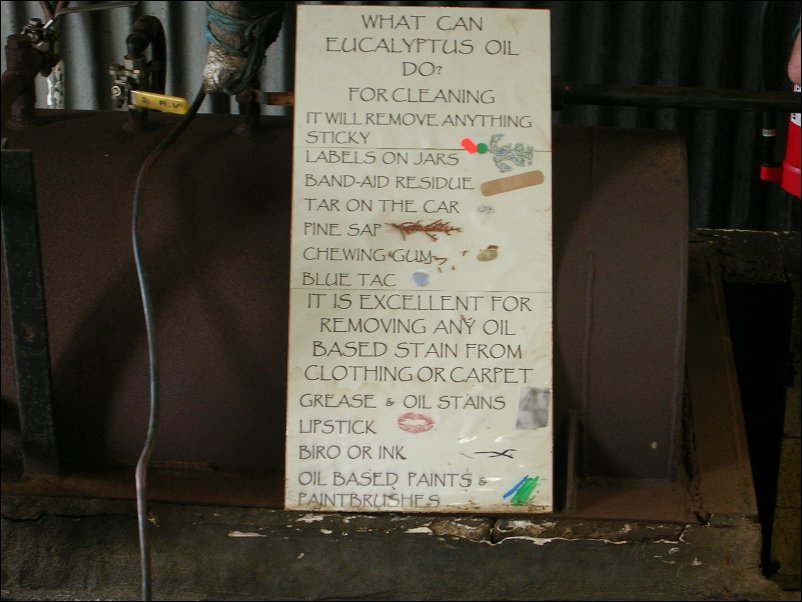 WHAT CAN
EUCALYPTUS OIL
DO?
FOR CLEANING
IT WILL REMOVE ANYTHING
STICKY
LABELS ON JARS
BAND-AID RESIDUE
TAR ON THE CAR
PINE SAP
CHEWING GUM
BLUE TAC
IT IS EXCELLENT FOR
REMOVING ANY OIL
BASED STAIN FROM
CLOTHING OR CARPET
GREASE & OIL STAINS
LIPSTICK
BIRO OR INK
OIL BASED PAINTS &
PAINTBRUSHES